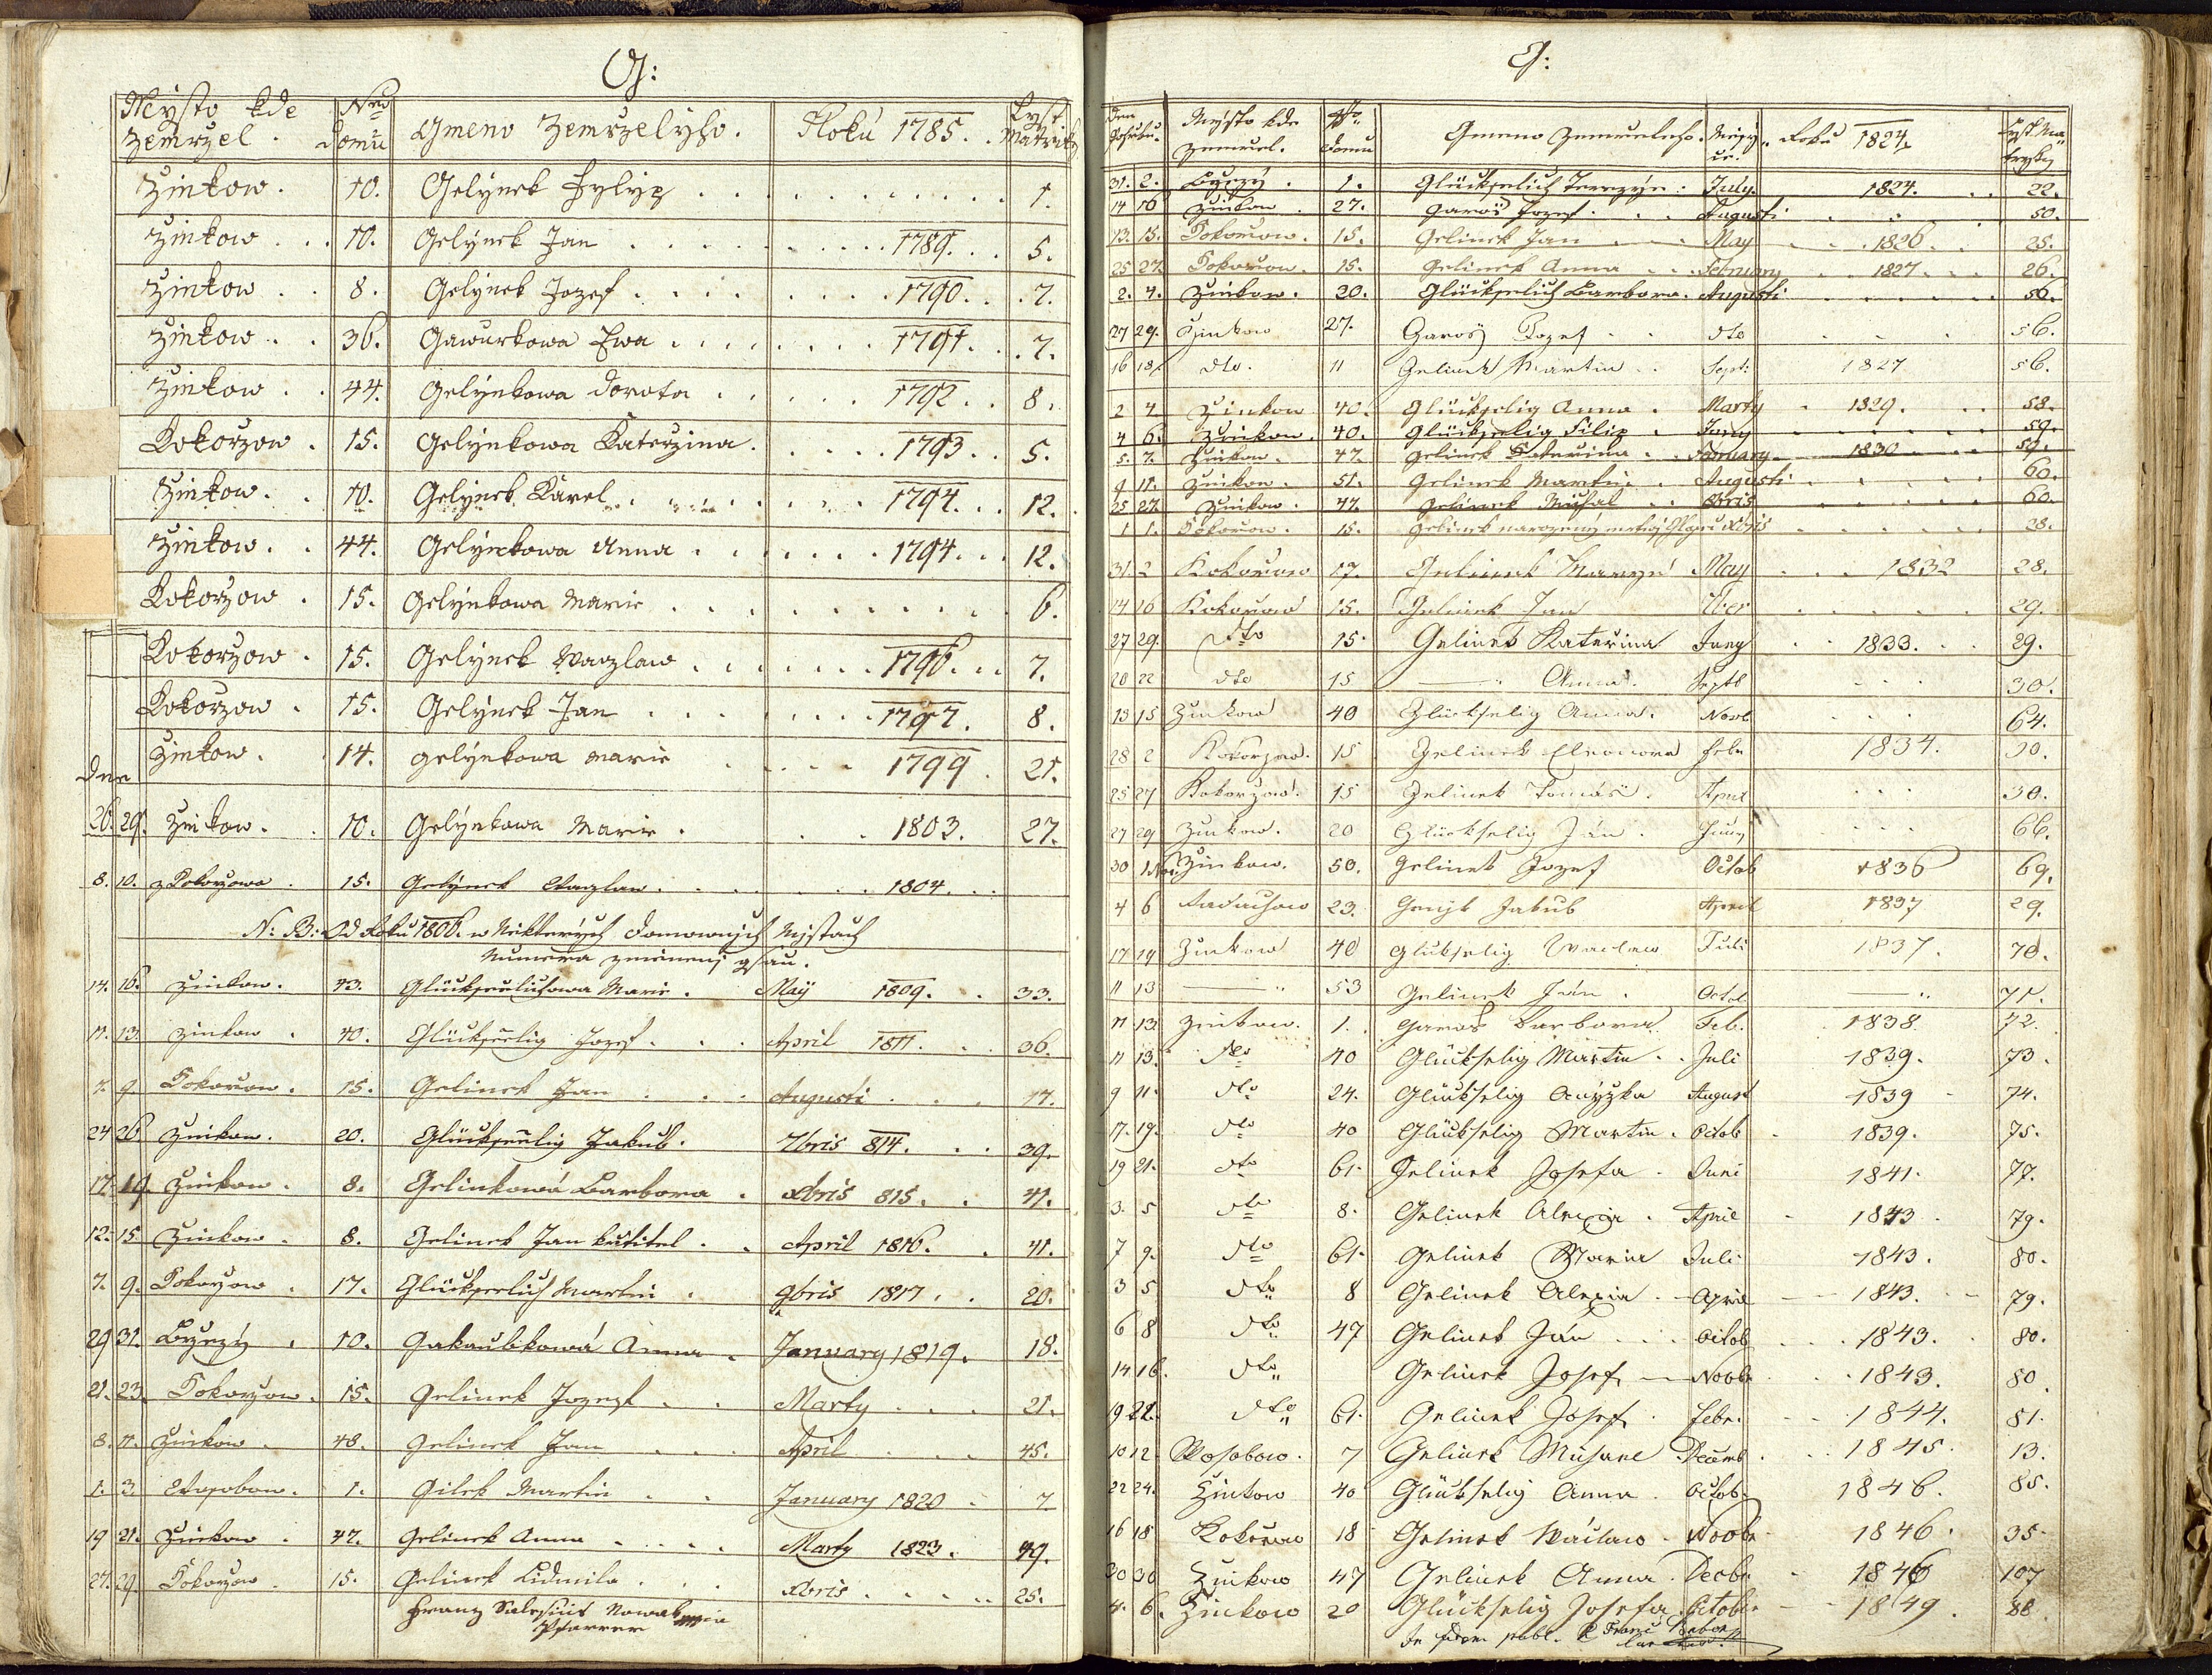 G:
Mysto kde zemrzel. Nro domu Gmeno zemrzelyho. Roku 1785. Lyst Matriky
Zinkow. 10. Gelynek Fylyp 1.
Zinkow 10. Gelynek Jan 1789. 5.
Zinkow 8. Gelynek Jozef 1790. 7.
Zinkow 36. Gawurkowa Ewa 1791. 7.
Zinkow 44. Gelynkowa Dorota 1792. 8.
Kokorzow 15. Gelynkowa Katerzina 1793. 5.
Zinkow. 10. Gelynek Karel 1794. 12.
Zinkow. 44. Gelynkowa Anna 1794. 12.
Kokorzow 15. Gelynkowa Marie 6.
Kokorzow 15. Gelynek Waczlaw 1796. 7.
Kokorzow 15. Gelynek Jan 1797. 8.
Zinkow. 14. Gelynkowa Marie 1799. 21.
Dne
26. 29. Zinkow. 10. Gelynkowa Marie 1803. 27.
8. 10. z Kokorzowa 15. Gelynek Waczlaw 1804.
N: B: Od Roku 1806. w Niktterych Domownjch Mjstach
Numera zmienenj gsau.
14. 16. Zinkow. 43. Glückseelichowa Marie. May 1809. 33.
11. 13. Zinkow 40. Glückseelig Jozef April 1811. 36.
7. 9. Kokorow. 15. Gelinek Jan Augusti 17.
24 26 Zinkow. 20. Glückseelig Jakub. Xbris 814. 39.
17. 19. Zinkow. 8. Gelinkowá Barbora Xbris 815. 41.
12. 15 Zinkow. 8. Gelinek Jan kutitel April 1816. 41.
7. 9. Kokorzow 17. Glückseelich Martin 9bris 1817. 20.
29 31. Brzezy 10. Gakaubkowá Anna January 1819. 18.
21. 23. Kokorzow 15. Gelinek Jozef Marty 21.
8. 11. Zinkow 48. Gelinek Jan April 45.
1. 3. Wosobow. 1. Gilek Martin January 1820 7
19 21. Zinkow 47. Gelinek Anna Marty 1823. 49.
27. 29. Kokorzow 15. Gelinek Lidmila Xbris 25.
Franz Salesius Nowak mpia
Pfarrer
G:
Den Pohrbu. Mysto kde zemrel. Nro Domu Gmeno zemreleho. Mesyc Roku 1824 Lyst Matryky
31. 2. Brzezy 1. Glückselich Terezye July 1824. 22.
14 16 Zinkow 27. Garoš Jozef Augusti 50.
13. 15. Kokorow. 15. Gelinek Jan May 1826. 25.
25 27. Kokorow. 15. Gelinek Anna February 1827 26.
2. 4. Zinkow. 20. Glückselich Barbora. Augusti 56.
27 29. Zinkow 27. Garoš Jozef dto 56.
16 18 dto. 11 Gelinek Martin Sept: 1827 56.
2 4 Zinkow 40. Glückselig Anna Marty 1829. 58.
4 6. Zinkow. 40. Glückselig Filip Juny 59.
5. 7. Zinkow. 47. Gelinek Katerina January 1830 59.
9 11. Zinkow. 51. Gelinek Martin Augusti 60.
25 27. Zinkow. 47. Gelinek Michal 60
1 1. Kokorow. 15. Gelinek narozeny mrtwy 28.
31. 2 Kokorow 17. Gelinek May 1832 28.
14 16 Kokorow 15. Gelinek Jan 29.
27 29. dto 15. Gelinek Katerina Juny 1833. 29.
20 22 dto 15 Anna. Septb 30.
13 15 Zinkow 40 Glückselig Anna. Novb 64.
28 2 Kokorzow. 15 Gelinek Eleonora Febr 1834. 30.
25 27 Kokorzow. 15 Gelinek Tomáš April 30.
27 29 Zinkow. 20 Glückselig Ján. Juny 66.
30 1 Nov. Zinkow. 50. Gelinek Jozef Octob 1836 69.
4 6 23. Jakub April 1837 29.
17 19 Zinkow 40 Glükselig Waclaw Juli 1837. 70.
11 13 53 Gelinek Ján. Octob 71.
11 13. Zinkow. 1. Garoš Barbora. Feb. 1838. 72.
11 13. dto 40 Glückselig Martin. Juli 1839. 73.
9 11. dto 24. Glückselig August 1839 74.
17. 19. dto 40 Glückselig Martin. Octob 1839. 75.
19 21. dto 61. Gelinek Josefa. Juni 1841. 77.
3. 5 dto 8. Gelinek Alexia. April 1843. 79.
7 9. dto 61. Gelinek Maria Juli 1843. 80.
3 5 dto 8 Gelinek Alexia April 1843. 79.
6 8 dto 47 Gelinek Ján Octob 1843. 80.
14 16. dto Gelinek Josef Novbr 1843. 80.
19 21. dto 61. Gelinek Josef Febr. 1844. 81.
10 12 Wosobow. 7 Gelinek Decemb 1845. 13.
22 24. Zinkow 40 Glückselig Anna Octob. 1846. 85.
16 18 Kokorow 18 Gelinek Wáclaw Novbr 1846. 35.
30 Zinkow 47 Gelinek Anna. Decbr 1846 107
4. 6. Zinkow 20 Glückselig Josefa Octobr 1849. 88.
In fidem publ.